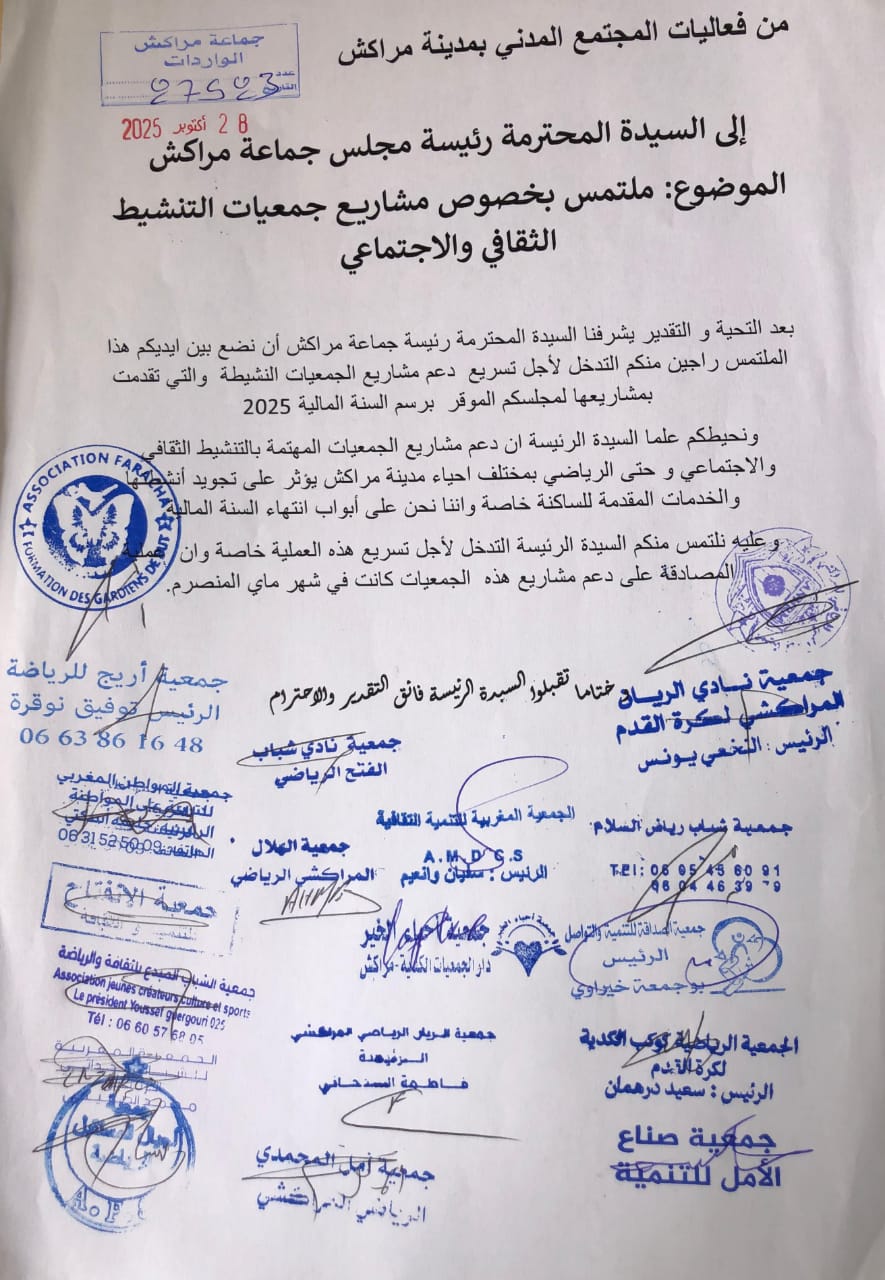 من فعاليات المجتمع المدني بمدينة مراكش
جماعة مراكش
الواردات
عدد 27523
28 أكتوبر 2025
إلى السيدة المحترمة رئيسة مجلس جماعة مراكش
الموضوع: ملتمس بخصوص مشاريع جمعيات التنشيط
الثقافي والاجتماعي
بعد التحية و التقدير يشرفنا السيدة المحترمة رئيسة جماعة مراكش أن نضع بين ايديكم هذا
الملتمس راجين منكم التدخل لأجل تسريع دعم مشاريع الجمعيات النشيطة والتي تقدمت
بمشاريعها لمجلسكم الموقر برسم السنة المالية 2025
ونحيطكم علما السيدة الرئيسة ان دعم مشاريع الجمعيات المهتمة بالتنشيط الثقافي
والاجتماعي و حتى الرياضي بمختلف احياء مدينة مراكش يؤثر على تجويد أنشطتها
والخدمات المقدمة للساكنة خاصة واننا نحن على أبواب انتهاء السنة المالية
وعليه نلتمس منكم السيدة الرئيسة التدخل لأجل تسريع هذه العملية خاصة وان عملية
المصادقة على دعم مشاريع هذه الجمعيات كانت في شهر ماي المنصرم.
ASSOCIATION FARACHA
FORMATION DES GARDIENS DE BUT
ختاما تقبلوا السيدة الرئيسة فائق التقدير والاحترام
جمعية نادي الريان
المراكشي لكرة القدم
الرئيس: النخعي يونس
جمعية أريج للرياضة
الرئيس توفيق نوقرة
06 63 86 16 48
جمعية نادي شباب
الفتح الرياضي
جمعية المواطن المغربي
للتربية على المواطنة
06 31 52 50 09
الجمعية المغربية للتنمية الثقافية
A.M.D.C.S
الرئيس: سفيان وانعيم
جمعية شباب رياض السلام
Tel: 06 95 45 60 91
06 04 46 39 79
جمعية الهلال
المراكشي الرياضي
جمعية الانفتاح
للتنمية و الثقافة
جمعية احياء الخير
دار الجمعيات الكدية-مراكش
جمعية احياء الخير
جمعية الصداقة للتنمية والتواصل
الرئيس
بوجمعة خيراوي
جمعية الشباب المبدع للثقافة والرياضة
Association jeunes créateurs culture et sports
Le président Youssef guergouri 025
Tél : 06 60 57 68 05
الجمعية المغربية
جمعية الريان الرياضي المراكشي
فاطمة
الجمعية الرياضية كوكب الكدية
لكرة القدم
الرئيس : سعيد درهمان
A.F.
جمعية أمل المحمدي
الرياضي المراكشي
جمعية صناع
الأمل للتنمية